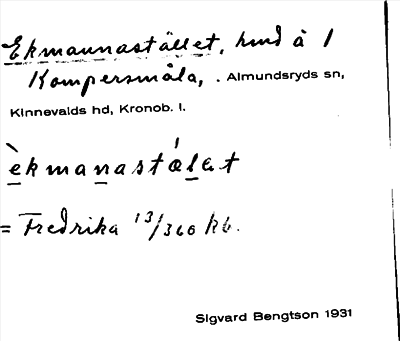 Ekmannastället, hmd å 1
Kompersmåla, . Almundsryds sn,
Kinnevalds hd, Kronob. l.
èkmanastǽlat
= Fredrika 13/360 kb.
Sigvard Bengtson 1931